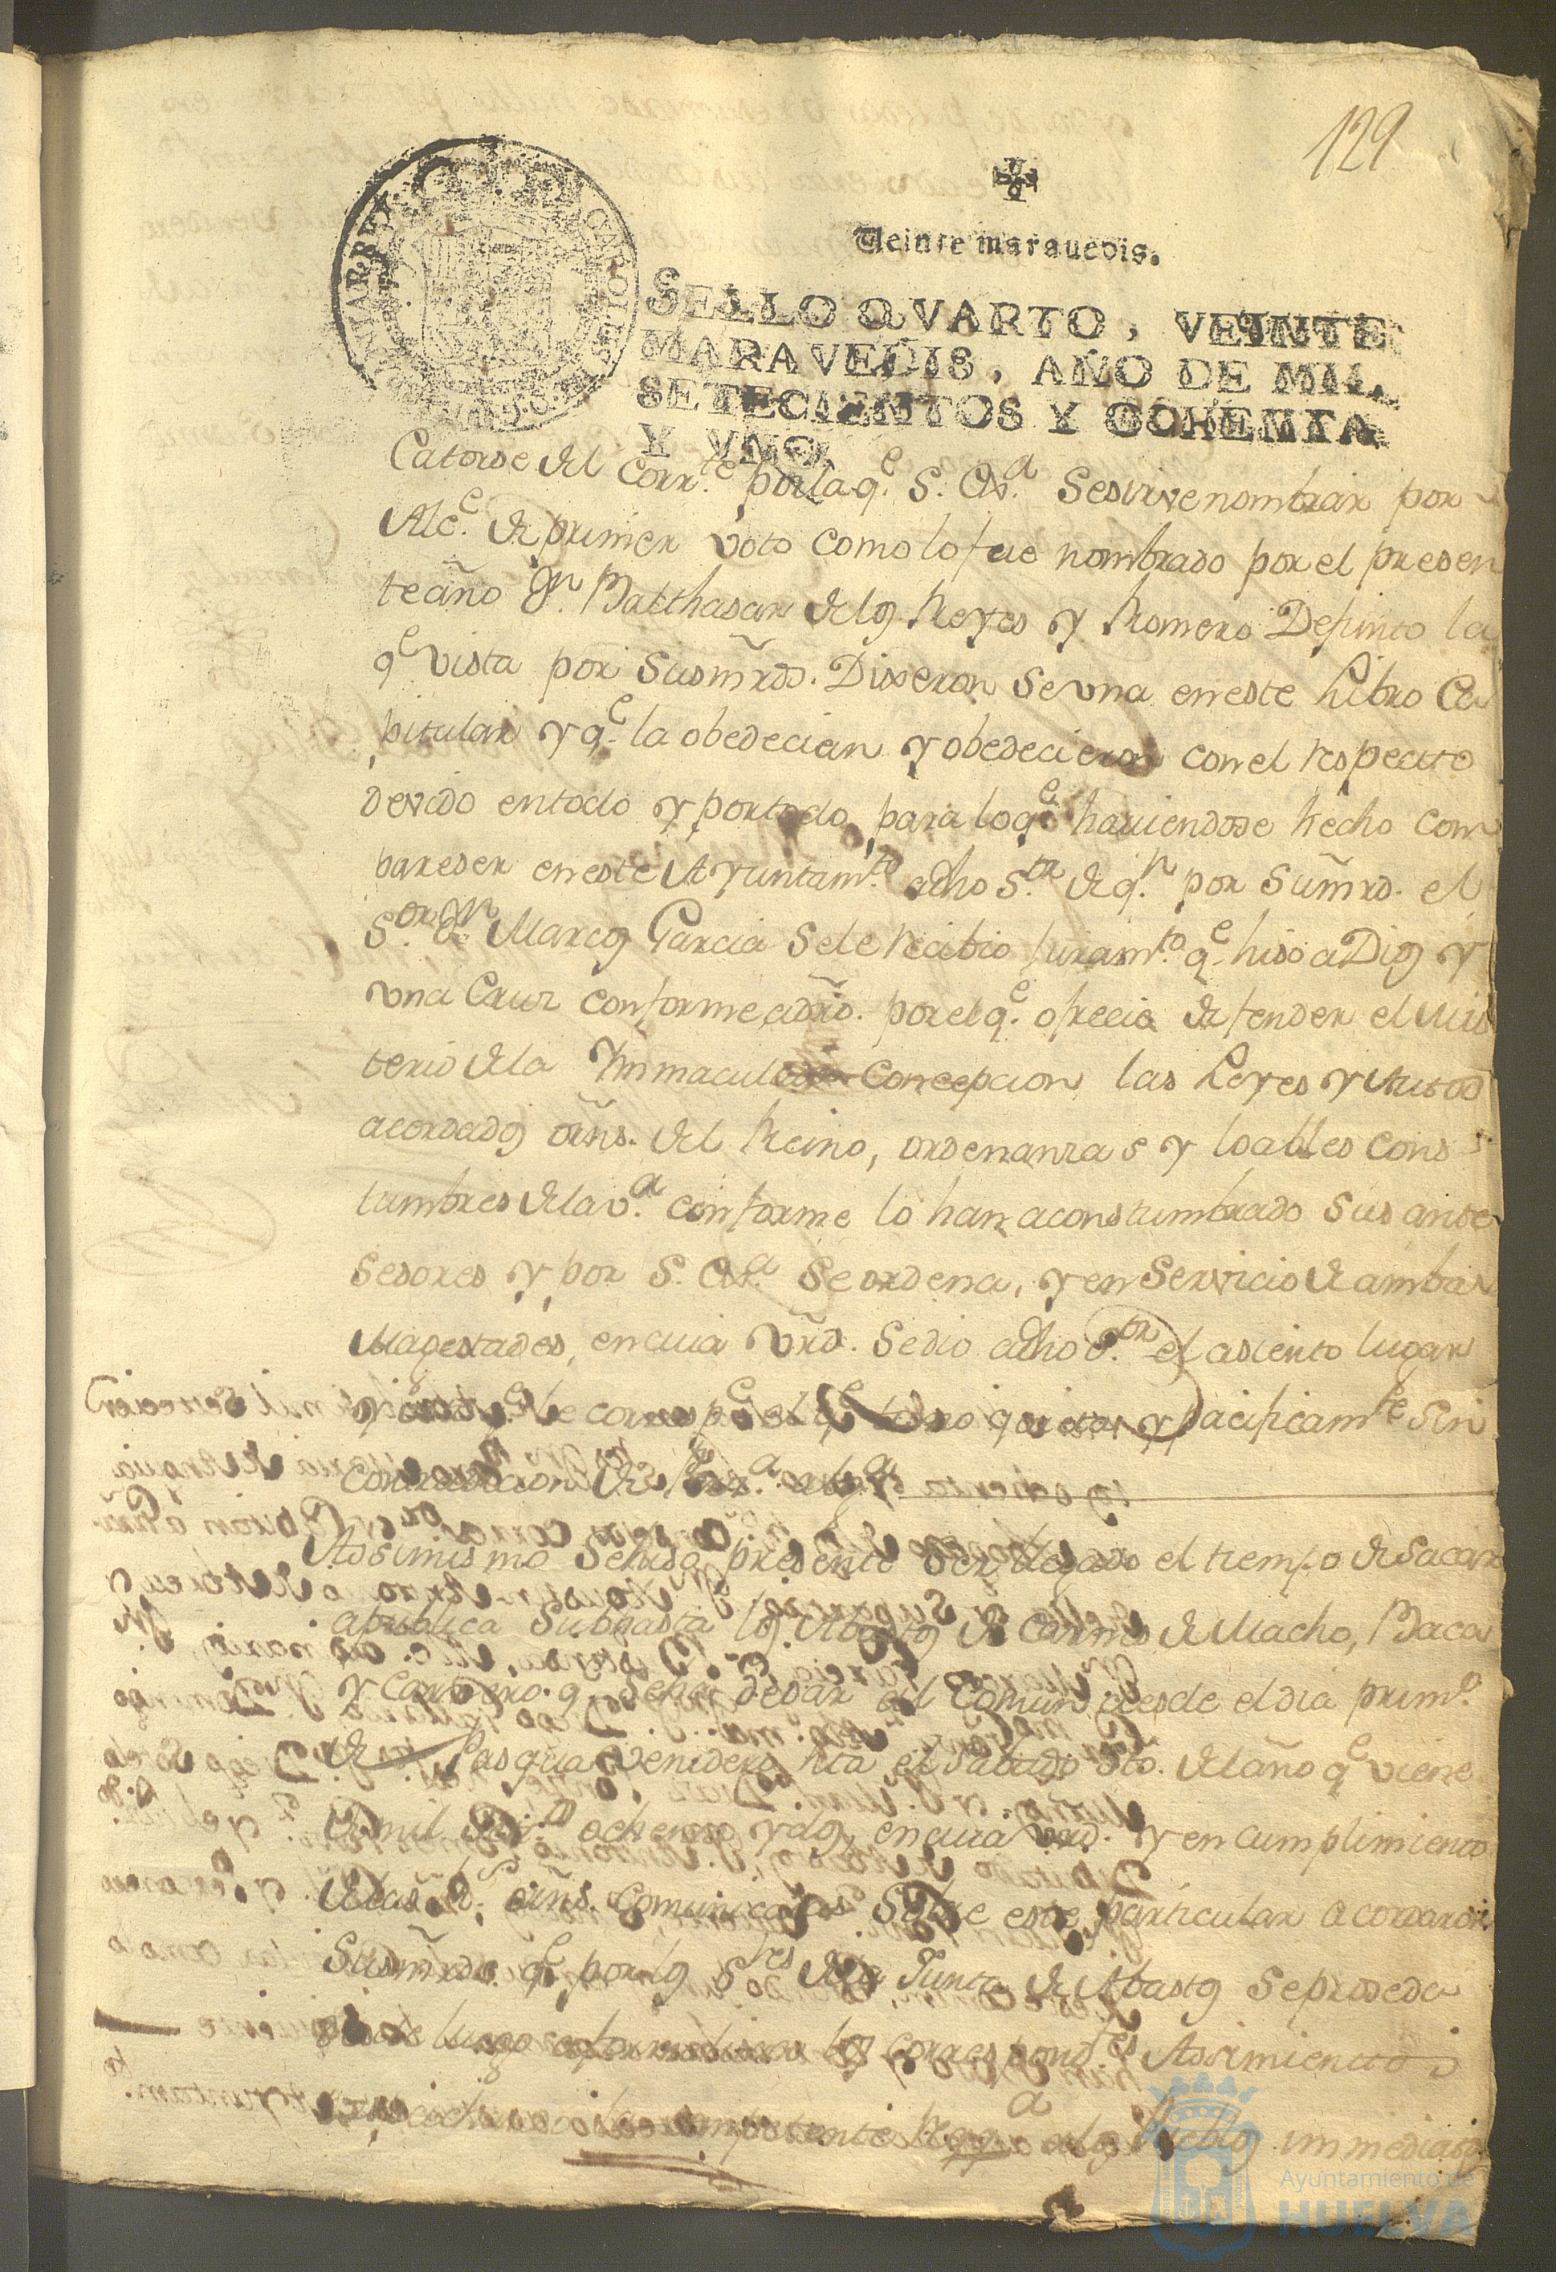 129
Veinte marauedis.
SELLO QVARTO, VEINTE
MARAVEDIS, AÑO DE MIL
SETECIENTOS Y OCHENTA
Y VNO.
Catorse del Corr.te por la q.e S. Ex.a se sirve nombrar por
Alc.e de primer voto como lo fue nombrado por el presen
te año Dn. Balthasar de los Reyes y Romero Depinto la
q.e vista por sus mrds. Dixeron se una en este Libro Ca
pitular y q.e la obedecian y obedecieron con el respecto
devido en todo y por todo, para lo q.e haviendose hecho com
pareser en este Ayuntam.to a dho S.or de q.n por su mrd. el
S.or Dn Marcos Garcia se le recibio juram.to q.e hiso a Dios y
una Cruz conforme a dro. por el q.e ofrecio defender el Mis
terio de la Ynmaculada Concepcion las Leyes y Autos
acordados orns. del Reino, ordenanzas y loables cons
tumbres de la v.a conforme lo han aconstumbrado sus ante
sesores y por S. Ex.a se ordena, y en servicio de ambas
Magestades, en cuia vrd. se dio a dho S.or el asiento lugar
y le corresp.e el q.e tomo quieta y pacificam.te sin
contradicion de Pers.a alg.a
Asimismo se hiso presente ser llegado el tiempo de sacar
a publica subhasta los Abastos de Carnes de Macho, Baca
y Carnero q.e se ha de dar al Comun desde el dia prim.o
de Pasqua venidero hta el Sabado Sto. del año q.e viene
de mil Set.tos ochenta y dos, en cuia vrd. y en cumplimiento
de las R.s orns. comunicadas sobre este particular acordaron
sus mrds. q.e por los S.res de la Junta de Abastos se proseda
desde luego a formalisar los correspond.tes Asimientos
la competente Reg.a a los Pueblos immediatos
Ayuntamiento de
HUELVA